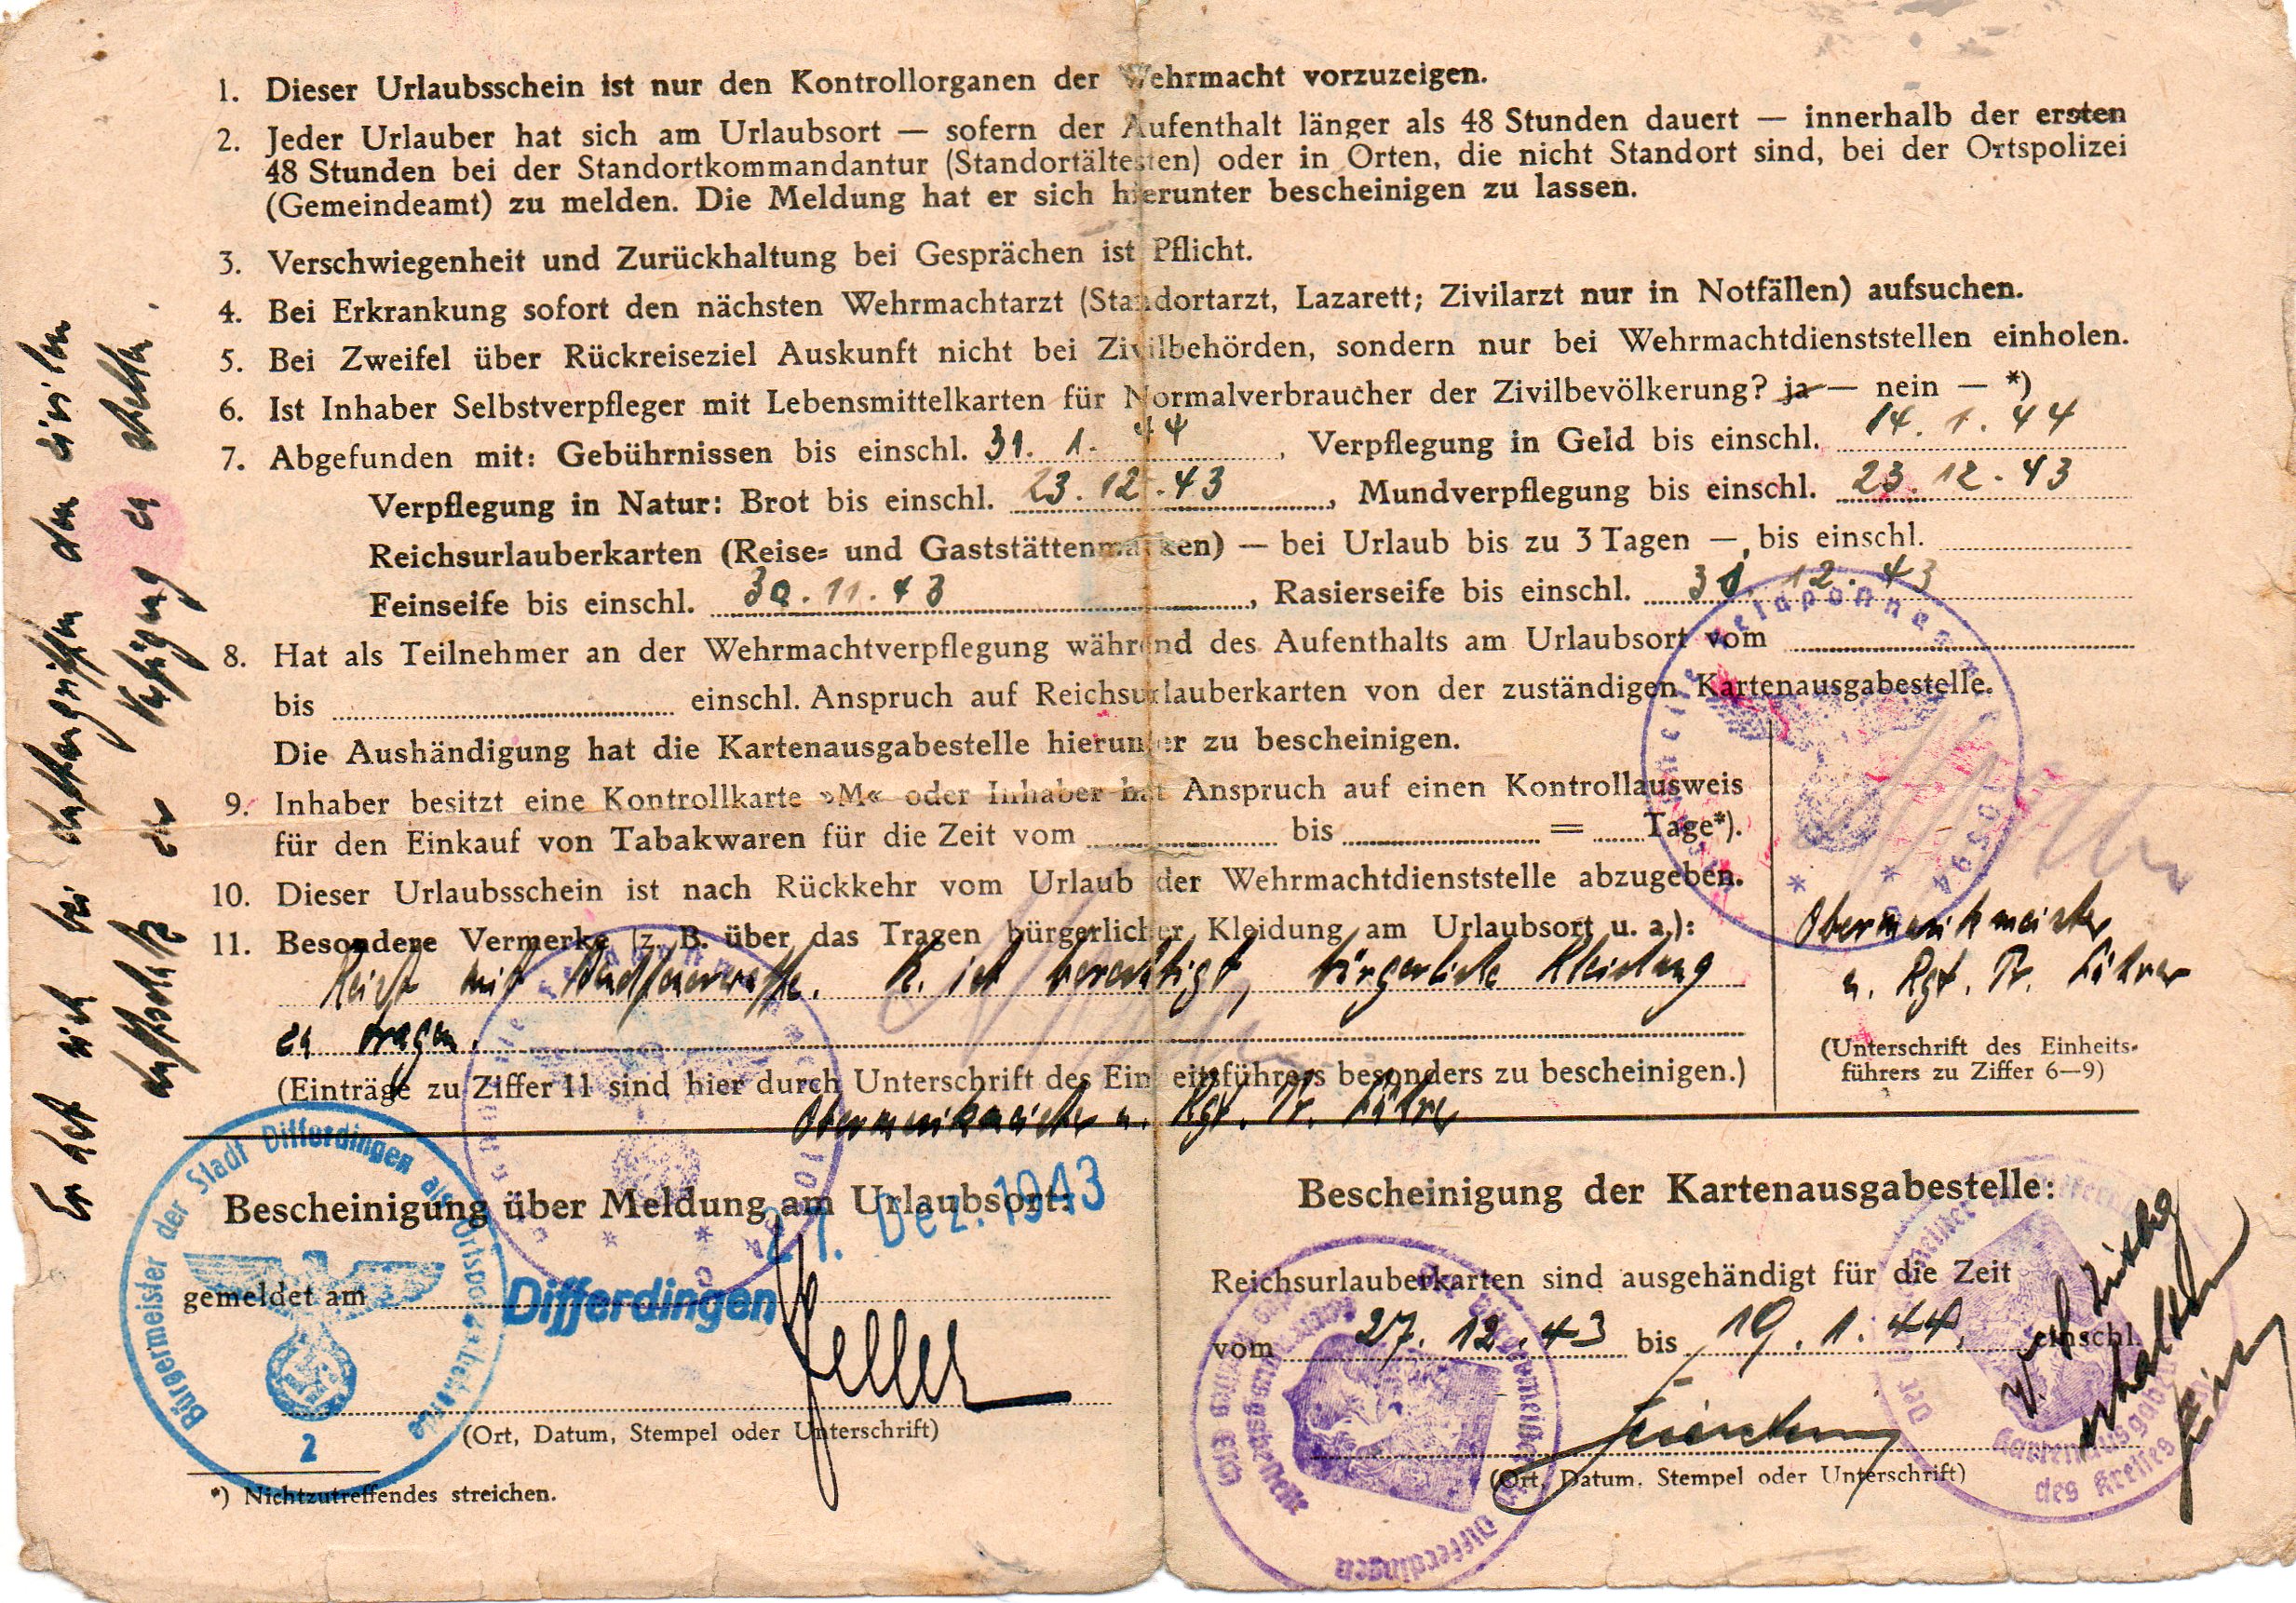 1. Dieser Urlaubsschein ist nur den Kontrollorganen der Wehrmacht vorzuzeigen.
2. Jeder Urlauber hat sich am Urlaubsort — sofern der Aufenthalt länger als 48 Stunden dauert — innerhalb der ersten
48 Stunden bei der Standortkommandantur (Standortältesten) oder in Orten, die nicht Standort sind, bei der Ortspolizei
(Gemeindeamt) zu melden. Die Meldung hat er sich hierunter bescheinigen zu lassen.
3. Verschwiegenheit und Zurückhaltung bei Gesprächen ist Pflicht.
4. Bei Erkrankung sofort den nächsten Wehrmachtarzt (Standortarzt, Lazarett; Zivilarzt nur in Notfällen) aufsuchen.
5. Bei Zweifel über Rückreiseziel Auskunft nicht bei Zivilbehörden, sondern nur bei Wehrmachtdienststellen einholen.
6. Ist Inhaber Selbstverpfleger mit Lebensmittelkarten für Normalverbraucher der Zivilbevölkerung? ja — nein — *)
7. Abgefunden mit: Gebührnissen bis einschl. 31. 1. 44, Verpflegung in Geld bis einschl. 14. 1. 44
Verpflegung in Natur: Brot bis einschl. 23. 12. 43, Mundverpflegung bis einschl. 23. 12. 43
Reichsurlauberkarten (Reise= und Gaststättenmarken) — bei Urlaub bis zu 3 Tagen —, bis einschl.
Feinseife bis einschl. 30. 11. 43, Rasierseife bis einschl. 31. 12. 43
8. Hat als Teilnehmer an der Wehrmachtverpflegung während des Aufenthalts am Urlaubsort vom
bis einschl. Anspruch auf Reichsurlauberkarten von der zuständigen Kartenausgabestelle.
Die Aushändigung hat die Kartenausgabestelle hierunter zu bescheinigen.
9. Inhaber besitzt eine Kontrollkarte »M« oder Inhaber hat Anspruch auf einen Kontrollausweis
für den Einkauf von Tabakwaren für die Zeit vom bis = Tage*).
10. Dieser Urlaubsschein ist nach Rückkehr vom Urlaub der Wehrmachtdienststelle abzugeben.
11. Besondere Vermerke (z. B. über das Tragen bürgerlicher Kleidung am Urlaubsort u. a.):
Reist mit Handfeuerwaffe. K. ist berechtigt, bürgerliche Kleidung
zu tragen.
(Einträge zu Ziffer 11 sind hier durch Unterschrift des Einheitsführers besonders zu bescheinigen.)
Obermusikmeister u. Rgt. Tr. Führer
Obermusikmeister
u. Rgt. Tr. Führer
(Unterschrift des Einheits-
führers zu Ziffer 6—9)
Er hat sich bei Luftangriffen dem zivilen
Luftschutz zur Verfügung zu stellen.
Bescheinigung über Meldung am Urlaubsort:
27. Dez. 1943
gemeldet am
Differdingen
(Ort, Datum, Stempel oder Unterschrift)
*) Nichtzutreffendes streichen.
Bürgermeister der Stadt Differdingen als Ortspolizeibehörde
2
Bescheinigung der Kartenausgabestelle:
Reichsurlauberkarten sind ausgehändigt für die Zeit
vom 27. 12. 43 bis 19. 1. 44, einschl.
(Ort, Datum, Stempel oder Unterschrift)
Der Bürgermeister
Differdingen
Kartenausgabestelle
des Kreises